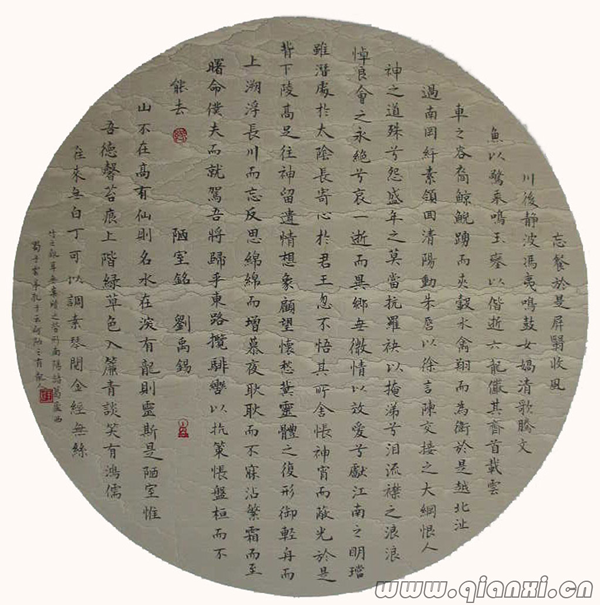 忘餐於是屏翳收風
川後静波馮夷鳴鼓女媧清歌騰文
魚以驚乘鳴玉鑾以偕逝六龍儼其齊首載雲
車之容裔鯨鯢踴而夾轂水禽翔而為衛於是越北沚
過南岡紆素領回清陽動朱唇以徐言陳交接之大綱恨人
神之道殊兮怨盛年之莫當抗羅袂以掩涕兮泪流襟之浪浪
悼良會之永絶兮哀一逝而異鄉無微情以效愛兮獻江南之明璫
雖潜處於太陰長寄心於君王忽不悟其所舍悵神宵而蔽光於是
背下陵高足往神留遺情想象顧望懷愁冀靈體之復形御輕舟而
上溯浮長川而忘反思綿綿而增慕夜耿耿而不寐沾繁霜而至
曙命僕夫而就駕吾將歸乎東路攬騑轡以抗策悵盤桓而不
能去 陋室銘 劉禹錫
山不在高有仙則名水在深有龍則靈斯是陋室惟
吾德馨苔痕上階緑草色入簾青談笑有鴻儒
往來無白丁可以調素琴閲金經無絲
竹之亂耳無案牘之勞形南陽諸葛廬西
蜀子雲亭孔子云何陋之有
www.qianxi.cn